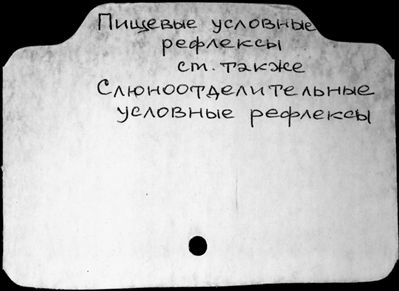 Пищевые условные
рефлексы
см. также
Слюноотделительные
условные рефлексы